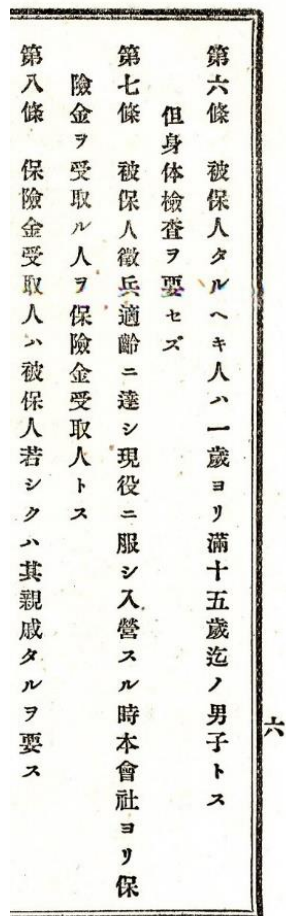 第六條 被保人タルヘキ人ハ一歲ヨリ滿十五歲迄ノ男子トス
但身体檢查ヲ要セズ
第七條 被保人徵兵適齡ニ達シ現役ニ服シ入營スル時本會社ヨリ保
險金ヲ受取ル人ヲ保險金受取人トス
第八條 保險金受取人ハ被保人若シクハ其親戚タルヲ要ス
六